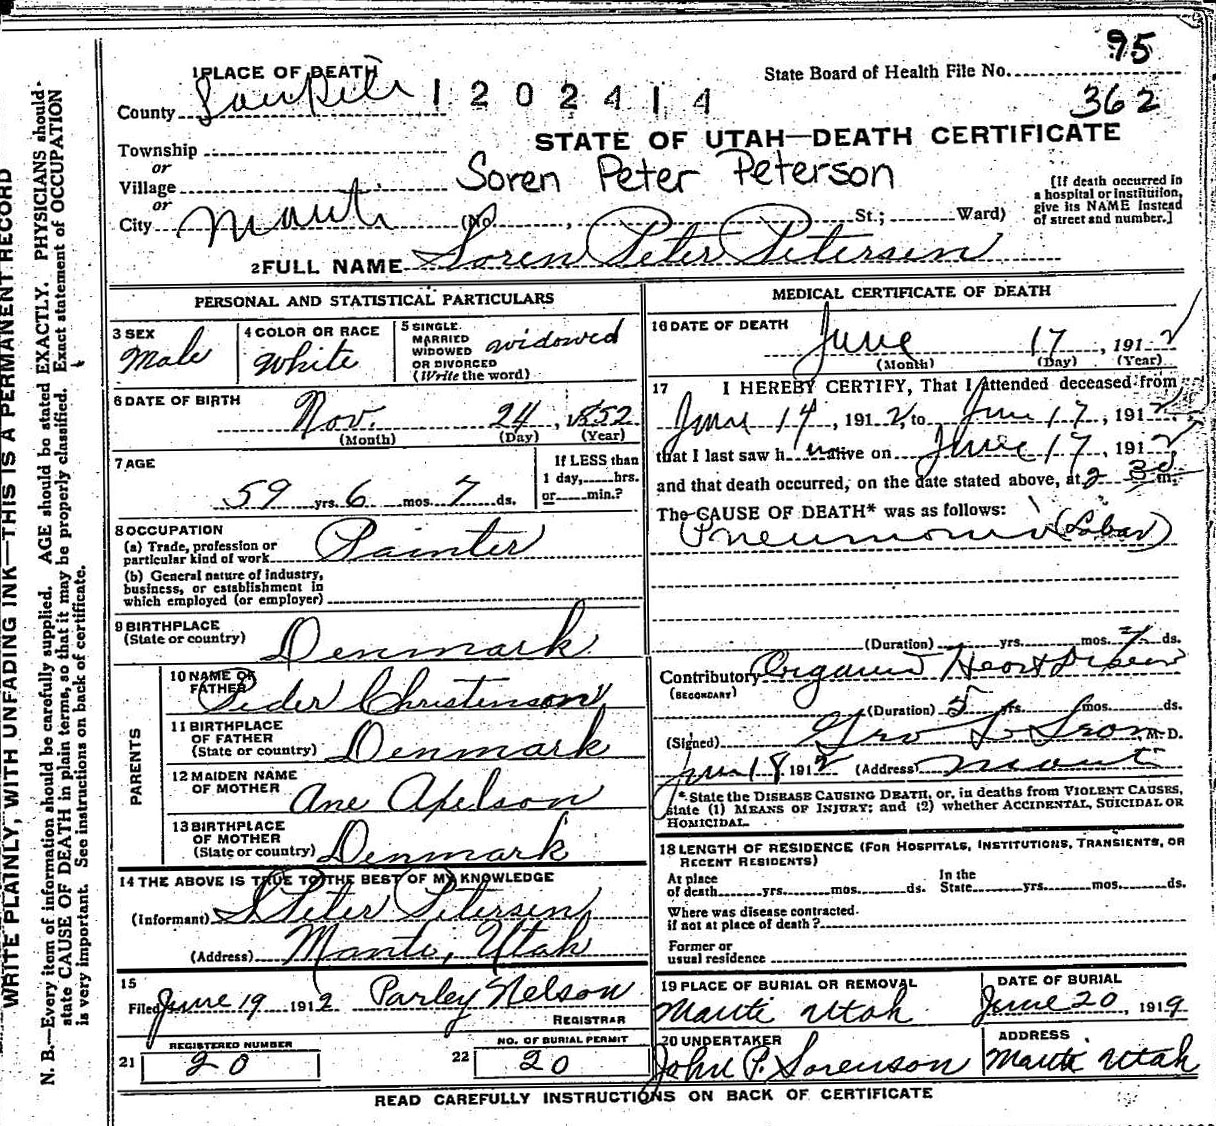 95
1 PLACE OF DEATH
State Board of Health File No.
County Sanpete 1202414
362
STATE OF UTAH—DEATH CERTIFICATE
Township
or
Village
Soren Peter Peterson
[If death occurred in a hospital or institution, give its NAME instead of street and number.]
or
City Manti (No. , St.; Ward)
2 FULL NAME Soren Peter Petersen
PERSONAL AND STATISTICAL PARTICULARS
3 SEX
Male
4 COLOR OR RACE
White
5 SINGLE
MARRIED
WIDOWED
OR DIVORCED
(Write the word)
widowed
6 DATE OF BIRTH
Nov. 24, 1852
(Month) (Day) (Year)
7 AGE
59 yrs. 6 mos. 7 ds.
If LESS than
1 day, hrs.
or min.?
8 OCCUPATION
(a) Trade, profession or
particular kind of work Painter
(b) General nature of industry,
business, or establishment in
which employed (or employer)
9 BIRTHPLACE
(State or country) Denmark
PARENTS
10 NAME OF
FATHER Peder Christenson
11 BIRTHPLACE
OF FATHER
(State or country) Denmark
12 MAIDEN NAME
OF MOTHER Ane Apelson
13 BIRTHPLACE
OF MOTHER
(State or country) Denmark
14 THE ABOVE IS TRUE TO THE BEST OF MY KNOWLEDGE
(Informant) S Peter Petersen
(Address) Manti, Utah
15
Filed June 19 1912 Parley Nelson
REGISTRAR
REGISTERED NUMBER
21 20
NO. OF BURIAL PERMIT
22 20
MEDICAL CERTIFICATE OF DEATH
16 DATE OF DEATH
June 17, 1912
(Month) (Day) (Year)
17 I HEREBY CERTIFY, That I attended deceased from
June 14, 1912, to June 17, 1912,
that I last saw him alive on June 17, 1912
and that death occurred, on the date stated above, at 2 30 m.
The CAUSE OF DEATH* was as follows:
Pneumonia (Lobar)
(Duration) yrs. mos. 7 ds.
Contributory Organic Heart Disease
(SECONDARY)
(Duration) 5 yrs. mos. ds.
(Signed) Geo L M.D.
June 18 1912 (Address) Manti
* State the DISEASE CAUSING DEATH, or, in deaths from VIOLENT CAUSES,
state (1) MEANS OF INJURY; and (2) whether ACCIDENTAL, SUICIDAL OR
HOMICIDAL.
18 LENGTH OF RESIDENCE (FOR HOSPITALS, INSTITUTIONS, TRANSIENTS, OR
RECENT RESIDENTS)
At place
of death yrs. mos. ds.
In the
State yrs. mos. ds.
Where was disease contracted
if not at place of death?
Former or
usual residence
19 PLACE OF BURIAL OR REMOVAL
Manti Utah
DATE OF BURIAL
June 20, 1919
20 UNDERTAKER
John P. Sorenson
ADDRESS
Manti Utah
READ CAREFULLY INSTRUCTIONS ON BACK OF CERTIFICATE
WRITE PLAINLY, WITH UNFADING INK—THIS IS A PERMANENT RECORD
N. B.—Every item of information should be carefully supplied. AGE should be stated EXACTLY. PHYSICIANS should
state CAUSE OF DEATH in plain terms, so that it may be properly classified. Exact statement of OCCUPATION
is very important. See instructions on back of certificate.